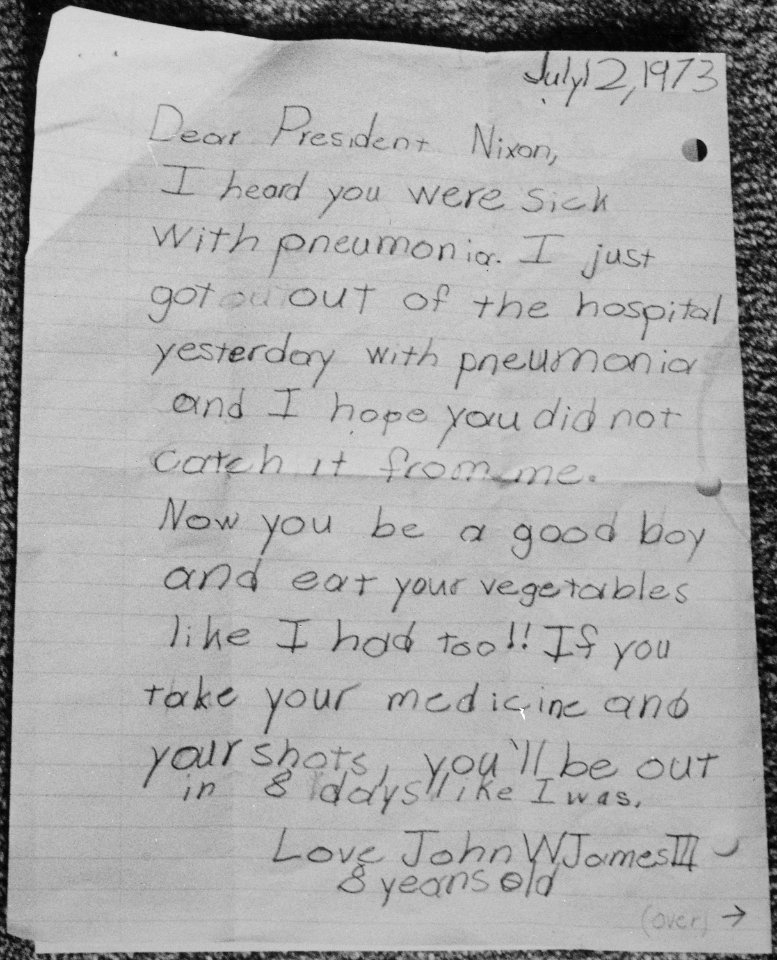 July 12, 1973
Dear President Nixon,
I heard you were sick
with pneumonia. I just
got ou out of the hospital
yesterday with pneumonia
and I hope you did not
catch it from me.
Now you be a good boy
and eat your vegetables
like I had too!! If you
take your medicine and
your shots, you'll be out
in 8 days like I was.
Love John W James III
8 years old
(over) →